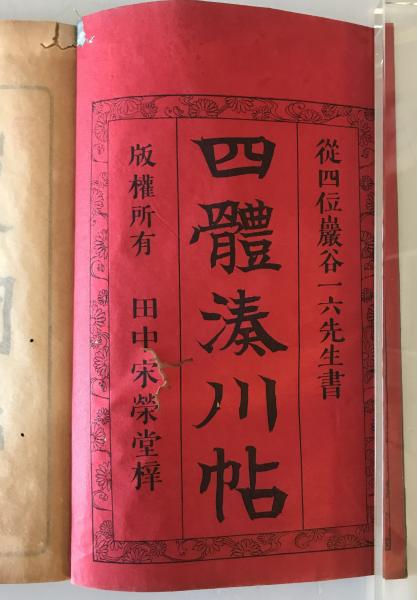 從四位巖谷一六先生書
四體湊川帖
版權所有 田中宋榮堂梓